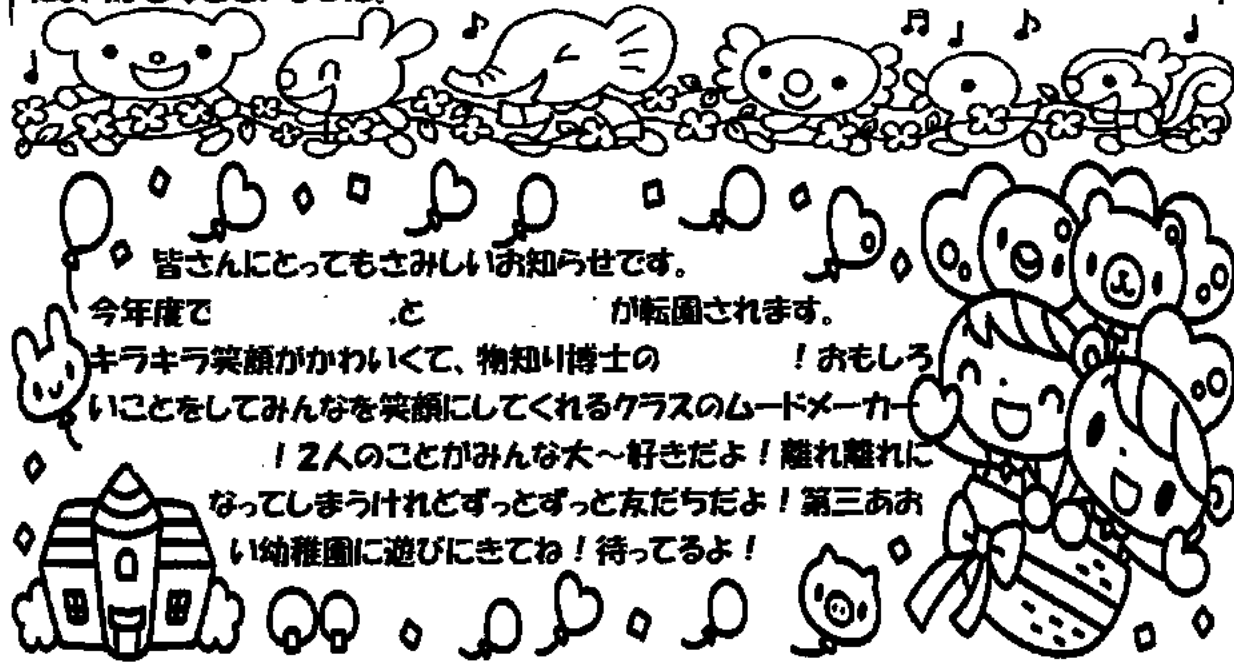 皆さんにとってもさみしいお知らせです。
今年度で と が転園されます。
キラキラ笑顔がかわいくて、物知り博士の ！おもしろ
いことをしてみんなを笑顔にしてくれるクラスのムードメーカー
！2人のことがみんな大～好きだよ！離れ離れに
なってしまうけれどずっとずっと友だちだよ！第三あお
い幼稚園に遊びにきてね！待ってるよ！